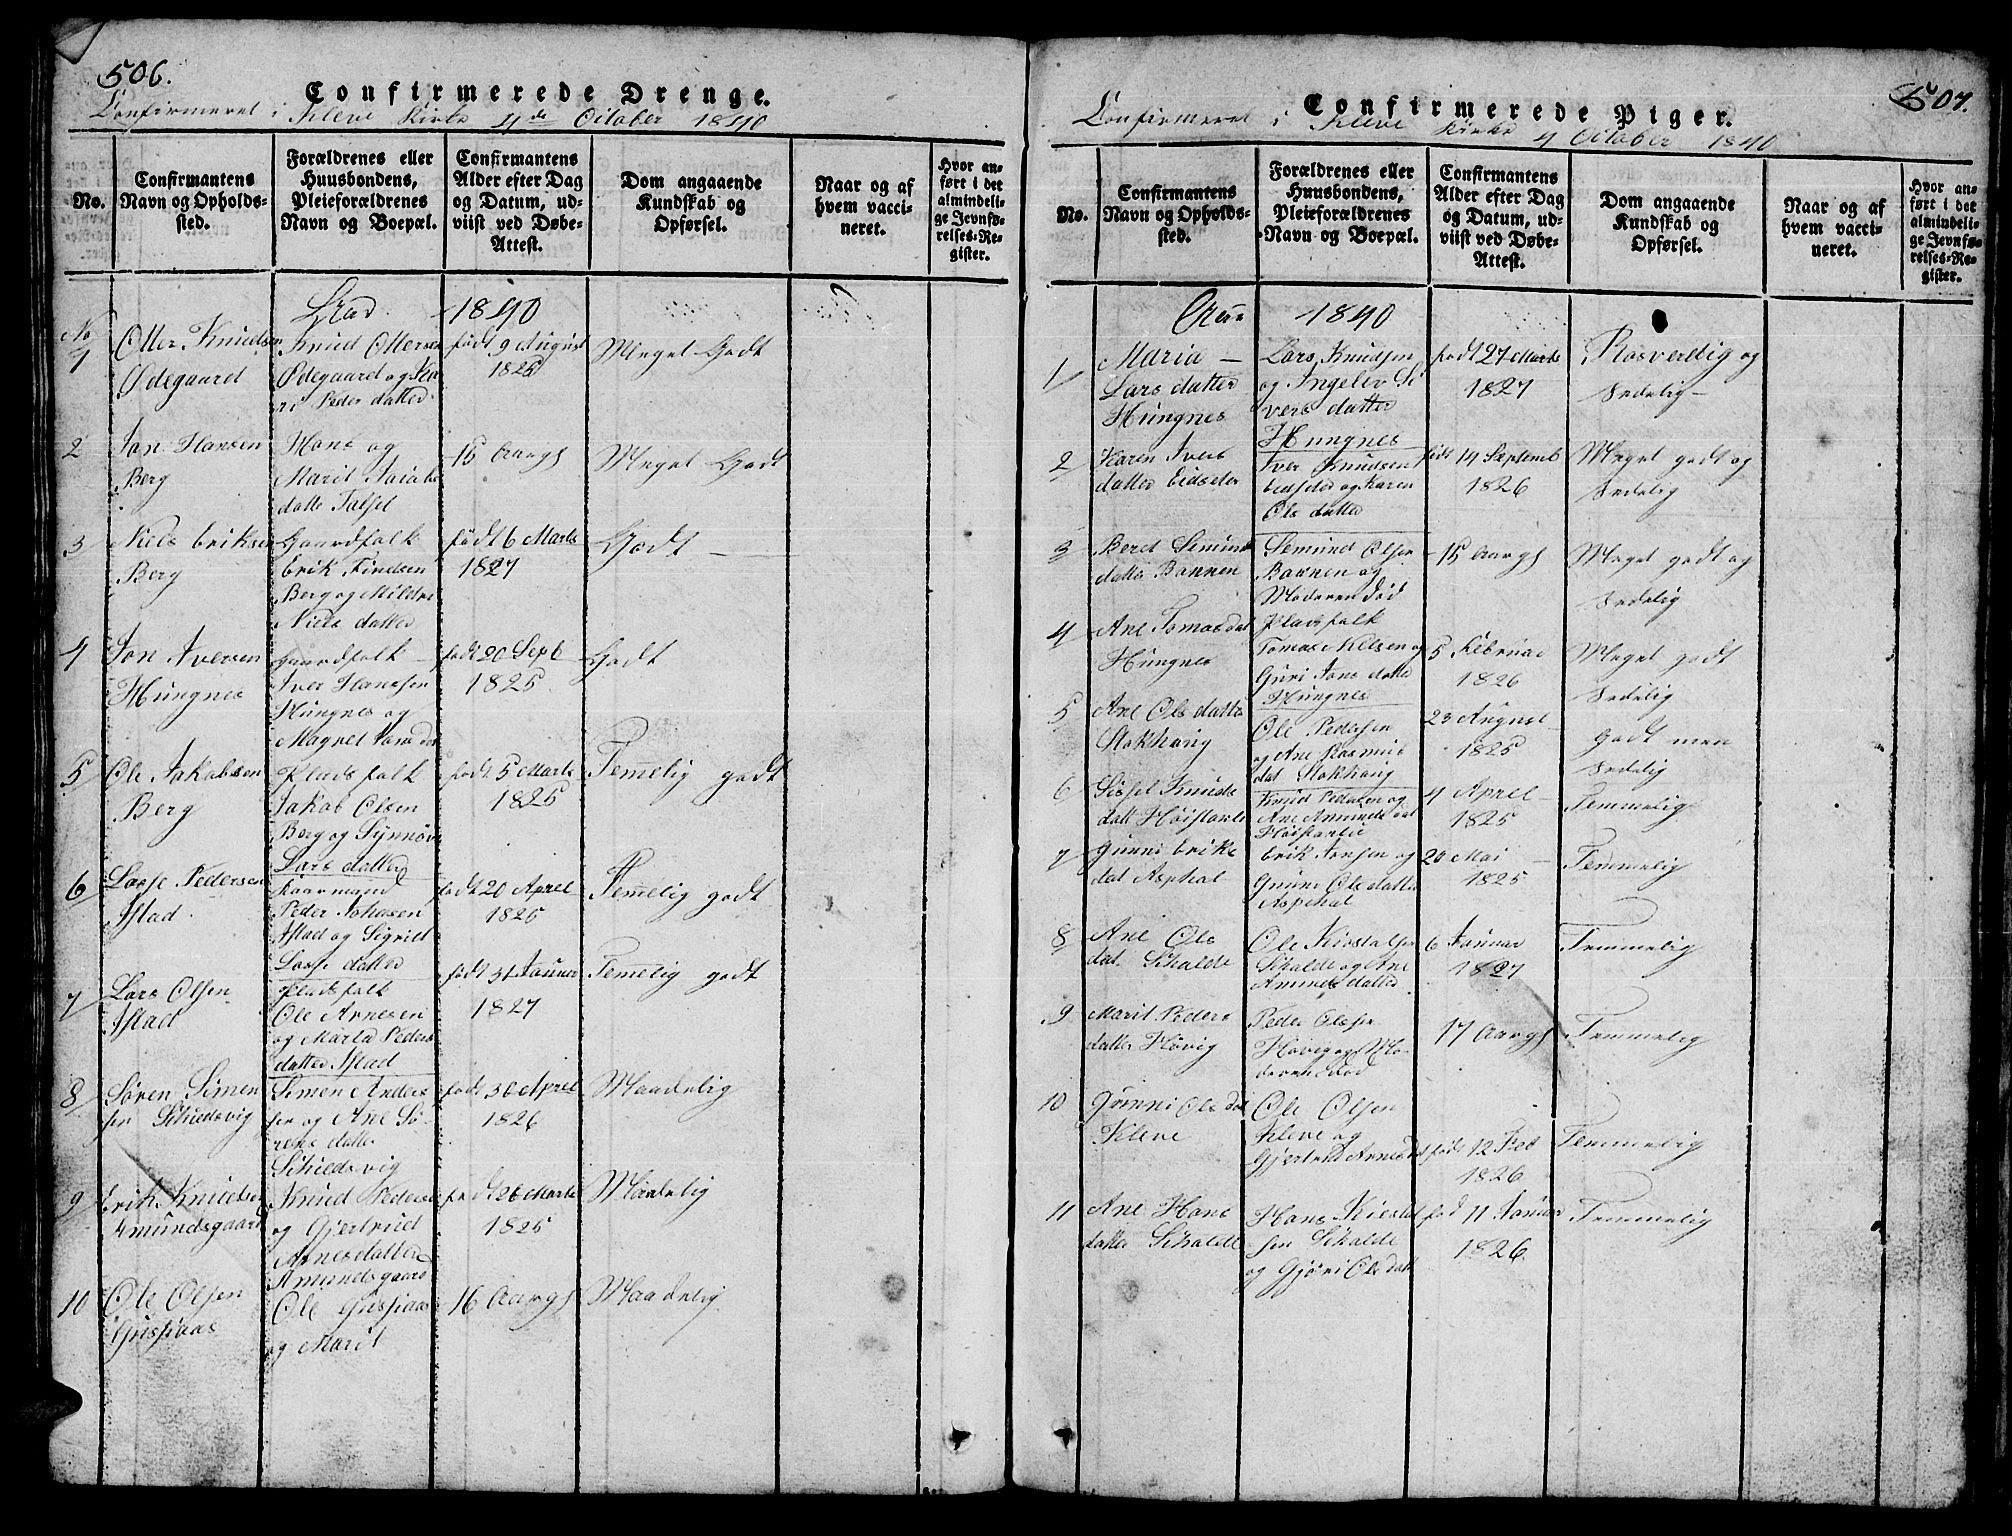 506.
Confirmerede Drenge.
Confirmeret i Kleve Kirke 4de October 1840
No.
Confirmantens Navn og Opholds-sted.
Forældrenes eller Huusbondens, Pleieforældrenes Navn og Boepæl.
Confirmantens Alder efter Dag og Datum, ud-viist ved Døbe-Attest.
Dom angaaende Kundskab og Opførsel.
Naar og af hvem vacci-neret.
Hvor an-ført i det almindeli-ge Jevnfø-relses-Re-gister.
1840
No
1
Otter Knudsen
Ødegaard
Knud Ottersen
Ødegaard og Ka
ri Peder datter
født 9 August
1825
Meget Godt
2
Jon Hansen
Berg
Hans og
Marit
datte
15 Aargs
Meget Godt
3
Niels Eriksen
Berg
Gaardfolk
Erik Findsen
Berg og Mildri
Niels datter
født 6 Marts
1827
Godt
4
Jon Iversen
Hungnes
Gaardfolk
Iver Hanssen
Hungnes og
Magnel Jons dat
født 20 Sept
1825
Godt
5
Ole Jakobsen
Berg
Pladsfolk
Jakob Olsen
Berg og Synnøv
Lars datter
født 5 Marts
1825
Temelig godt
6
Lasse Pedersen
Istad
Kaarmand
Peder Johasen
Istad og Sigrid
Lasse datter
født 20 Aprel
1825
Temelig godt
7
Lars Olsen
Istad
Pladsfolk
Ole Arnesen
og Marta Peders
datter Istad
født 31 Januar
1827
Temelig godt
8
Søren Simen
sen Schiedsvig
Simen Anders
sen og Ane Sö
rens datter
Schieldsvig
født 30 Aprel
1826
Maadelig
9
Erik Knudsen
Amundsgaard
Knud Peders
og Gjertrud
Arnesdatter
Amundsgaard
født 26 Marts
1825
Maadelig
10
Ole Olsen
Gussiaas
Ole Gussiaas
og Marit
16 Aargs
Maadelig
507.
Confirmerede Piger.
Confirmeret i Kleve Kirke 4 October 1840
No.
Confirmantens Navn og Opholds-sted.
Forældrenes eller Huusbondens, Pleieforældrenes Navn og Boepæl.
Confirmantens Alder efter Dag og Datum, ud-viist ved Døbe-Attest.
Dom angaaende Kundskab og Opførsel.
Naar og af hvem vacci-neret.
Hvor an-ført i det almindeli-ge Jevnfø-relses-Re-gister.
1840
1
Maria
Lars datter
Hungnes
Lars Knudsen
og Ingelev Si
vers datter
Hungnes
født 27 Marts
1827
Rosverdig og
Sedelig
2
Karen Ivers
datter Eidseter
Iver Knudsen
Eidseter og Karen
Ols datter
født 14 Septemb
1826
Meget godt og
Sedelig
3
Beret Simund
datte Bannen
Semund Olsen
Bannen og
Moderen död
15 Aargs
Meget godt og
Sedelig
4
Ane Tomas dat
Hungnes
Pladsfolk
Tomas Nelsen og
Guri Jons datter
Hungnes
5 Februar
1826
Meget godt
Sedelig
5
Ane Ols datter
Stokhaug
Ole Pedersen
og Ane Rasmus
dat Stokhaug
23 August
1825
Godt men
Sedelig
6
Sissel Knuds
datt
Knud Pedersen og
Ane Amunds dat
4 Aprel
1825
Temmelig
7
Gunni Eriks
dat Asphol
Erik Jonsen og
Guuni Ols datter
Asphol
20 Mai
1825
Temmelig
8
Ane Ols
dat. Schalde
Ole Kirstafsen
Schalde og Ane
Ammels datter
6 Januar
1827
Temmelig
9
Marit Peders
datter Høvig
Peder Olsen
Høvig og Mo
deren död
17 Aargs
Temmelig
10
Gunni Ols dat
Kleve
Ole Olsen
Kleve og
Gjertrud Arnesdat
født 12 Feb
1826
Temmelig
11
Ane Hans
datter Schalde
Hans Kirstaf
sen Schalde
og Gjöri Ols datt
fød 11 Januar
1826
Temmelig